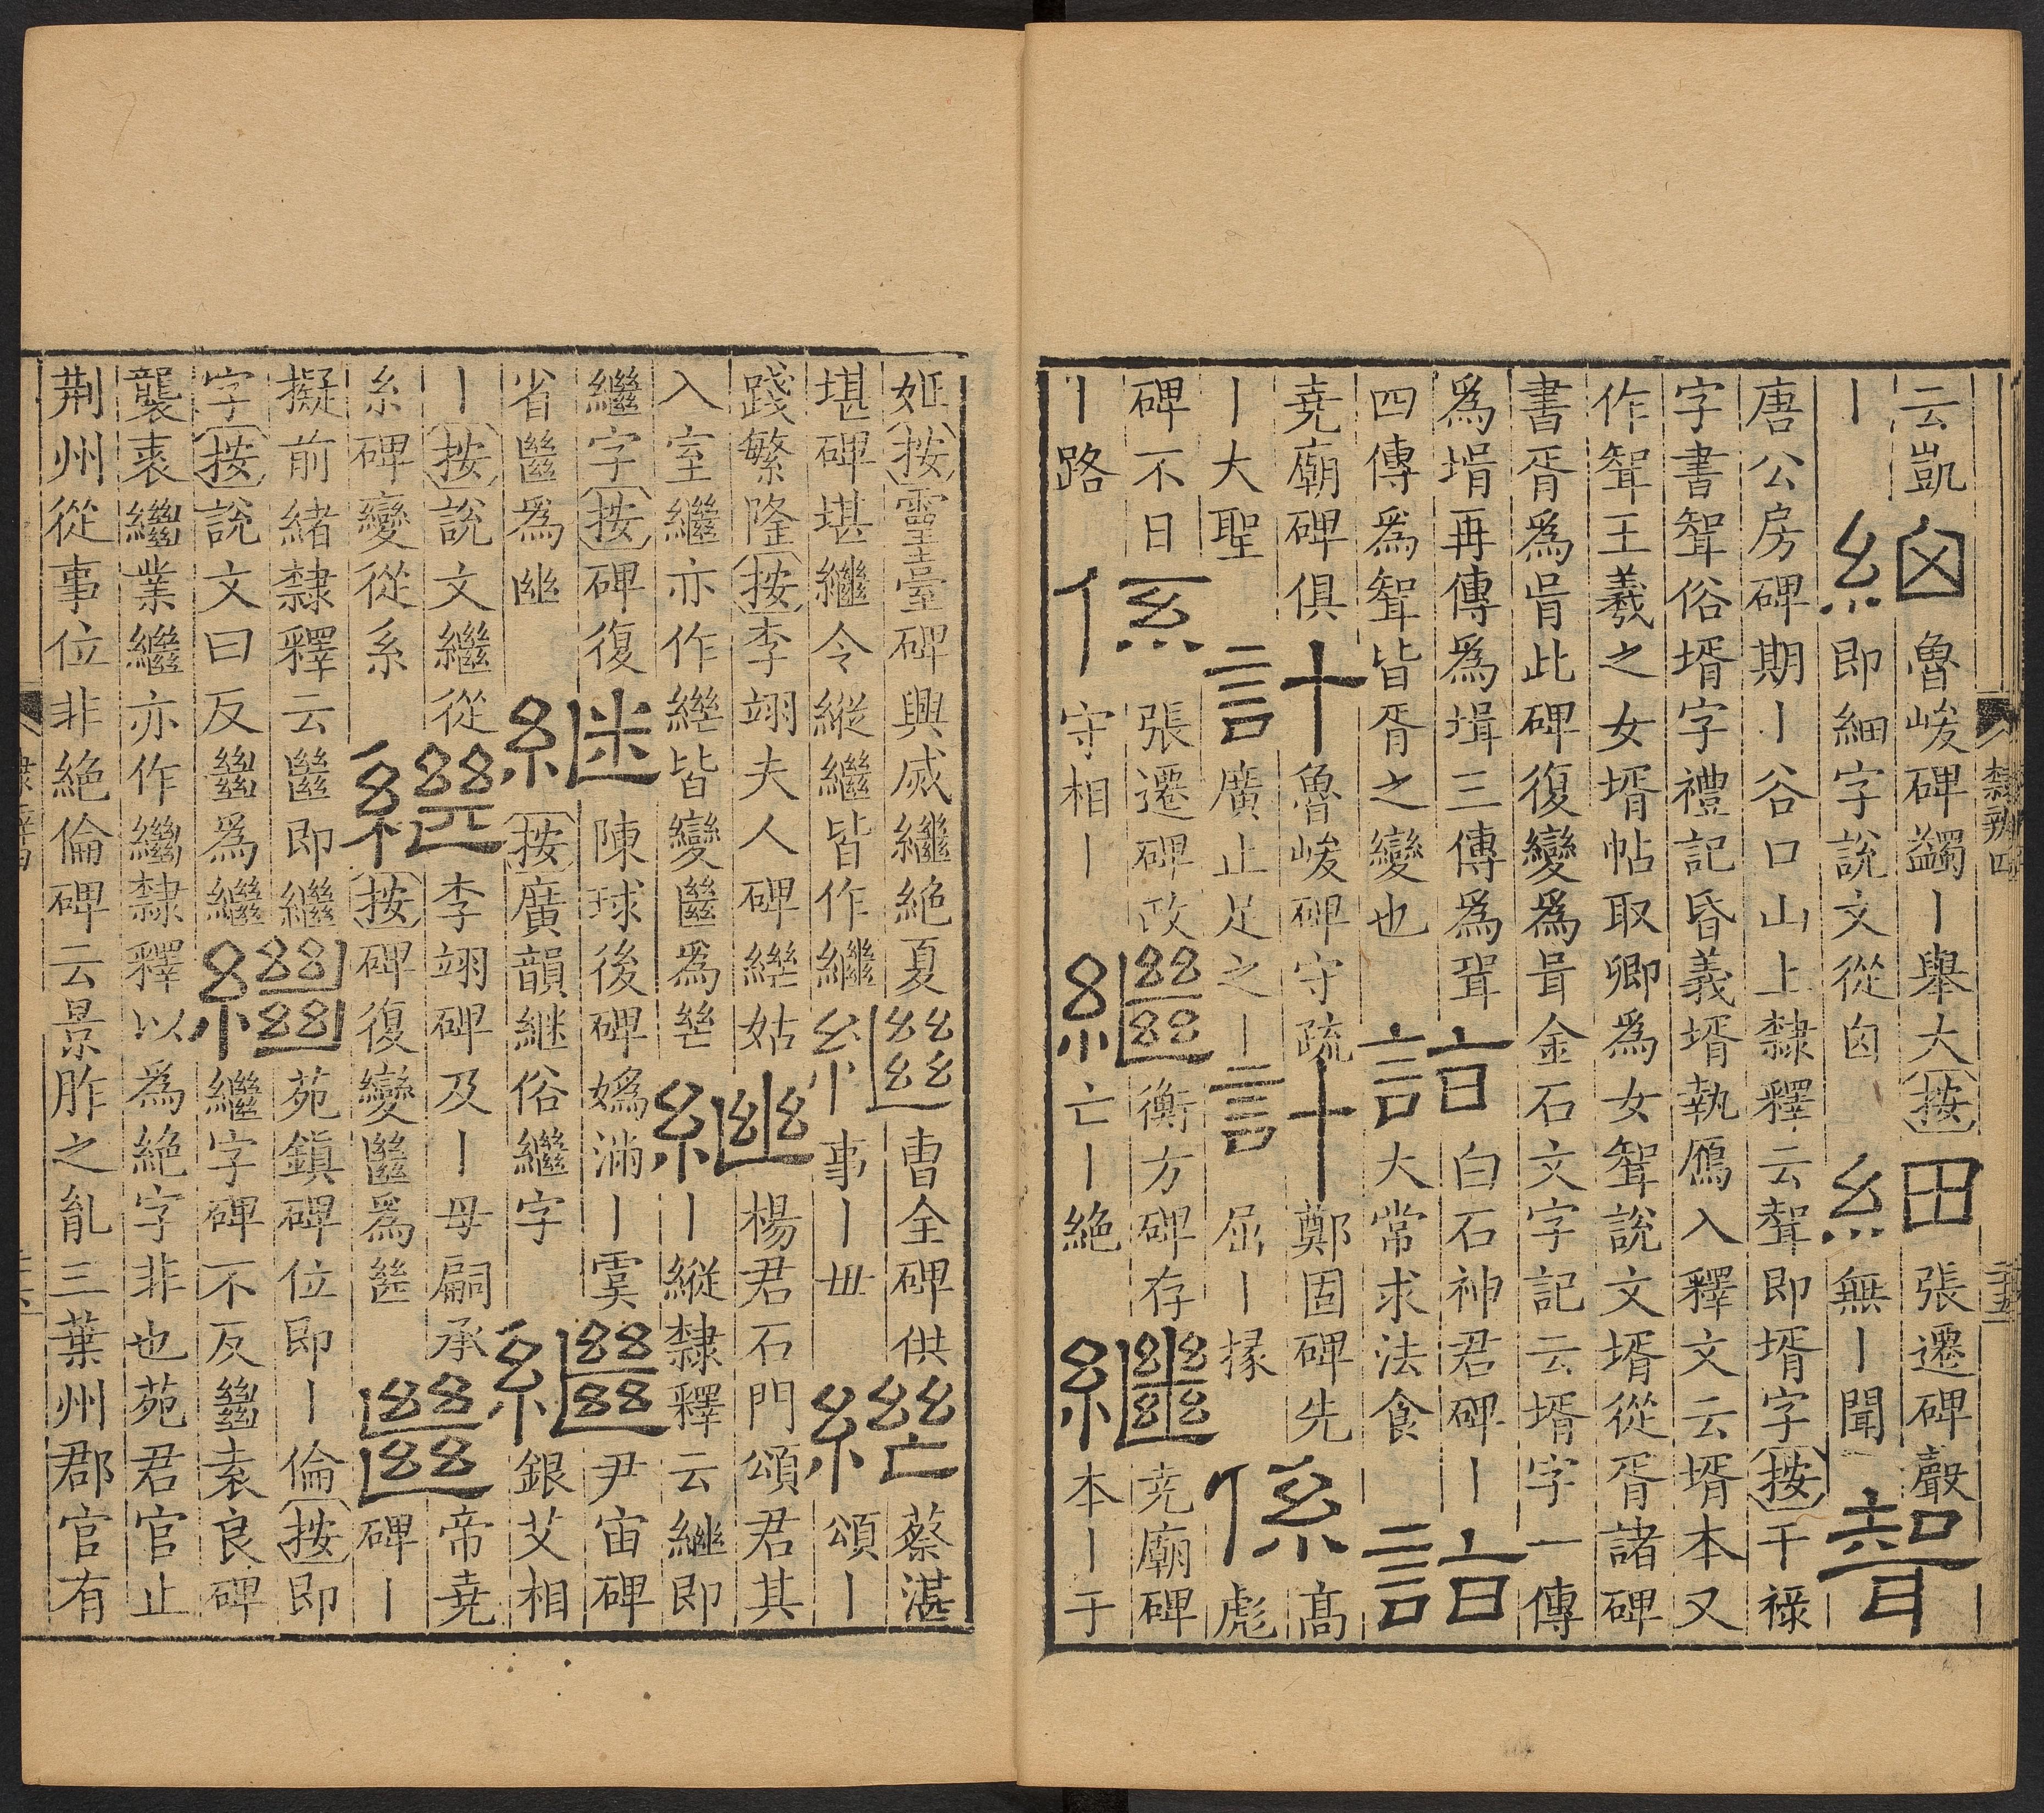 隸辨四
云凱
丨
細
魯峻碑蠲丨舉大按
即細字說文從囟
細
張遷碑聲
無丨聞
聟
唐公房碑期丨谷口山上隸釋云聟即壻字按干祿
字書聟俗壻字禮記昏義壻執鴈入釋文云壻本又
作聟王羲之女壻帖取卿為女聟說文壻從胥諸碑
書胥為肙此碑復變為咠金石文字記云壻字一傳
為壻再傳為揖三傳為聓
四傳為聟皆胥之變也
詣
白石神君碑丨
大常求法食
詣
堯廟碑俱
丨大聖
計
魯峻碑守疏
廣止足之丨
計
鄭固碑先
屈丨掾
係
高
彪
碑不日
丨路
係
張遷碑政
守相丨
繼
衡方碑存
亡丨絕
繼
堯廟碑
本丨于
姬按靈臺碑興烕繼絕夏
堪碑堪繼令縱繼皆作繼
繼
曹全碑供
事丨毌
繼
蔡湛
頌丨
踐繁隆按李翊夫人碑繼姑
入室繼亦作繼皆變㡭為
繼
楊君石門頌君其
丨縱隸釋云繼即
繼字按碑復
省㡭為
継
陳球後碑媯滿丨虞
按廣韻継俗繼字
繼
尹宙碑
銀艾相
丨按說文繼從
糸碑變從系
繼
李翊碑及丨母嗣承
按碑復變㡭為
㡭
帝堯
碑丨
擬前緒隸釋云㡭即繼
字按說文曰反㡭為繼
繼
苑鎮碑位即丨倫按即
繼字碑不反㡭袁良碑
襲裏繼業繼亦作繼隸釋以為絕字非也苑君官止
荆州從事位非絕倫碑云景胙之亂三葉州郡官有